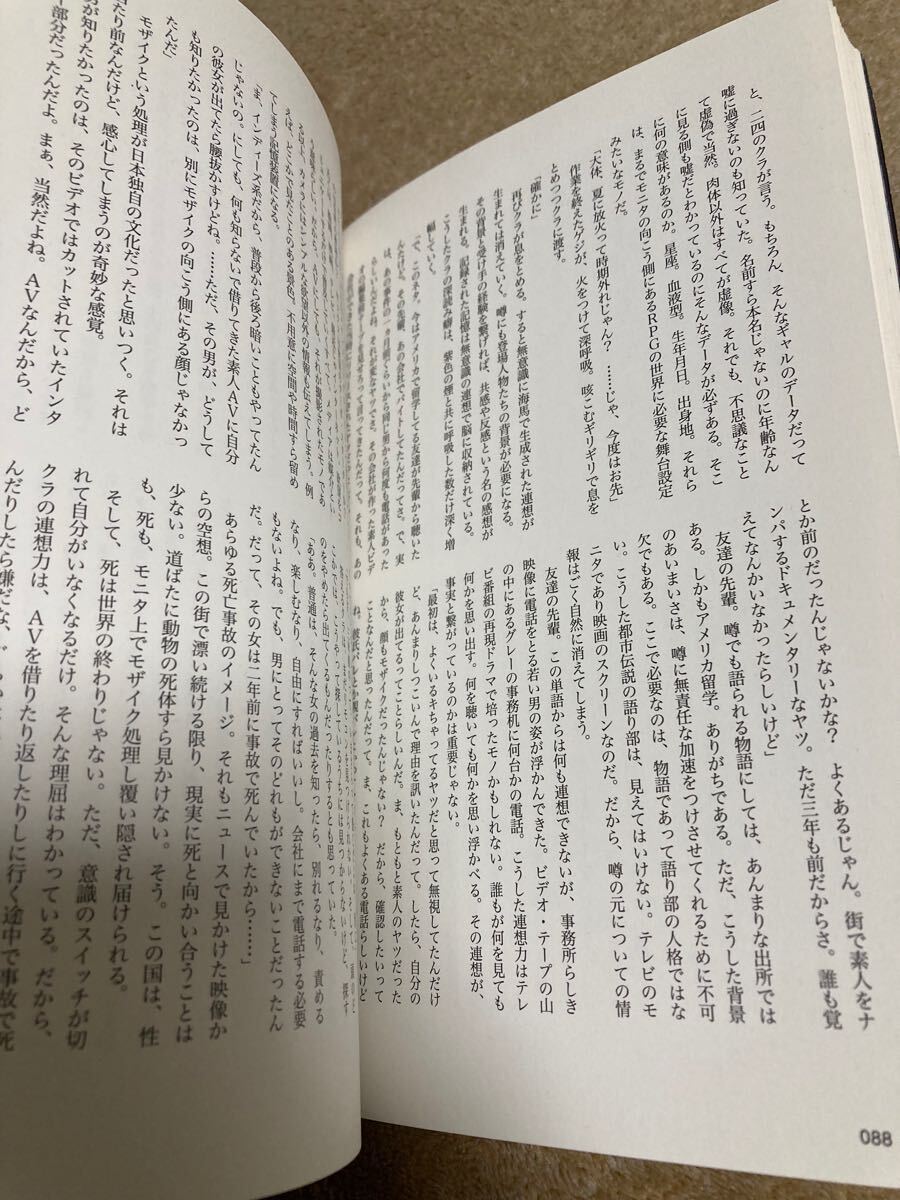 と、二四のクラが言う。もちろん、そんなギャルのデータだって
嘘に過ぎないのも知っていた。名前すら本名じゃないのに年齢なん
て虚偽で当然。肉体以外はすべてが虚像。それでも、不思議なこと
に見る側も嘘だとわかっているのにそんなデータが必ずある。そこ
に何の意味があるのか。星座。血液型。生年月日。出身地。それら
は、まるでモニタの向こう側にあるRPGの世界に必要な舞台設定
みたいなモノだ。
「大体、夏に放火って時期外れじゃん？……じゃ、今度はお先」
作業を終えたゲジが、火をつけて深呼吸。咳こむギリギリで息を
とめつつクラに渡す。
「確かに」
再びクラが息をとめる。すると無意識に海馬で生成された連想が
生まれては消えていく。噂にも登場人物たちの背景が必要になる。
その背景と受け手の経験を繋げれば、共感や反感という名の感想が
生まれる。記録された記憶は無意識の連想で脳に収納されている。
こうしたクラの深読み癖は、紫色の煙と共に呼吸した数だけ深く増
幅していく。
「で、このネタ、今はアメリカで留学してる友達が先輩から聴いた
んだけど、その先輩、あの会社でバイトしてたんだってさ。で、実
は、あの事件の一カ月前くらいから同じ男から何度も電話があった
らしいんだよね。それが変なヤツでさ。その会社が作った素人ビデ
って言ってきたんだって。それも、あの
とか前のだったんじゃないかな？　よくあるじゃん。街で素人をナ
ンパするドキュメンタリーなヤツ。ただ三年も前だからさ。誰も覚
えてなんかいなかったらしいけど」
友達の先輩。噂でも語られる物語にしては、あんまりな出所では
ある。しかもアメリカ留学。ありがちである。ただ、こうした背景
のあいまいさは、噂に無責任な加速をつけさせてくれるために不可
欠でもある。ここで必要なのは、物語であって語り部の人格ではな
い。こうした都市伝説の語り部は、見えてはいけない。テレビのモ
ニタであり映画のスクリーンなのだ。だから、噂の元についての情
報はごく自然に消えてしまう。
友達の先輩。この単語からは何も連想できないが、事務所らしき
映像に電話をとる若い男の姿が浮かんできた。ビデオ・テープの山
の中にあるグレーの事務机に何台かの電話。こうした連想力はテレ
ビ番組の再現ドラマで培ったモノかもしれない。誰もが何を見ても
何を聴いても何かを思い浮かべる。その連想が、
事実と繋がっているのかは重要じゃない。
「最初は、よくいるキちゃってるヤツだと思って無視してたんだけ
ど、あんまりしつこいんで理由を訊いたんだって。したら、自分の
彼女が出てるってことらしいんだ。ま、もともと素人のヤツだった
から、顔もモザイクだったんじゃない？　だから、確認したいって
ことなんだと思ったんだって。ま、これもよくある電話らしいけど
088
えば、どこかで見たことのある景色。不用意に空間や時間すら留め
てしまう記憶装置になる。
「ま、インディーズ系だから、普段から後ろ暗いこともやってたん
じゃないの。にしても、何も知らないで借りてきた素人AVに自分
の彼女が出てたら腰抜かすけどね。……ただ、その男が、どうして
も知りたかったのは、別にモザイクの向こう側にある顔じゃなかっ
たんだ」
モザイクという処理が日本独自の文化だったと思いつく。それは
当たり前なんだけど、感心してしまうのが奇妙な感覚。
が知りたかったのは、そのビデオではカットされていたインタ
部分だったんだよ。まぁ、当然だよね。AVなんだから、ど
のをやめたら出てくるもんだったりするとも思っていた。
「ああ。普通は、そんな女の過去を知ったら、別れるなり、責める
なり、楽しむなり、自由にすればいいし。会社にまで電話する必要
もないよね。でも、男にとってそのどれもができないことだったん
だ。だって、その女は二年前に事故で死んでいたから……」
あらゆる死亡事故のイメージ。それもニュースで見かけた映像か
らの空想。この街で漂い続ける限り、現実に死と向かい合うことは
少ない。道ばたに動物の死体すら見かけない。そう。この国は、性
も、死も、モニタ上でモザイク処理し覆い隠され届けられる。
そして、死は世界の終わりじゃない。ただ、意識のスイッチが切
れて自分がいなくなるだけ。そんな理屈はわかっている。だから、
クラの連想力は、AVを借りたり返したりしに行く途中で事故で死
んだりしたら嫌だな、